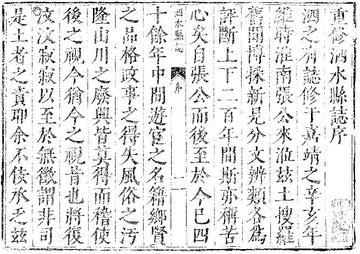 重修泗水縣誌序
泗之有誌修于嘉靖之辛亥年
維時淮南張公來涖玆土搜羅
舊聞博採新見分文辨類各爲
評斷上下二百年間斯亦稱苦
心矣自張公而後至於今已四
泗水縣誌 序 一
十餘年中間遊宦之名籍鄉賢
之品格政事之得失風俗之汚
隆山川之廢興皆莫得而稽使
後之視今猶今之視昔也將復
汶汶寂寂以至於無徵謂非司
是土者之責耶余不佞承乏玆